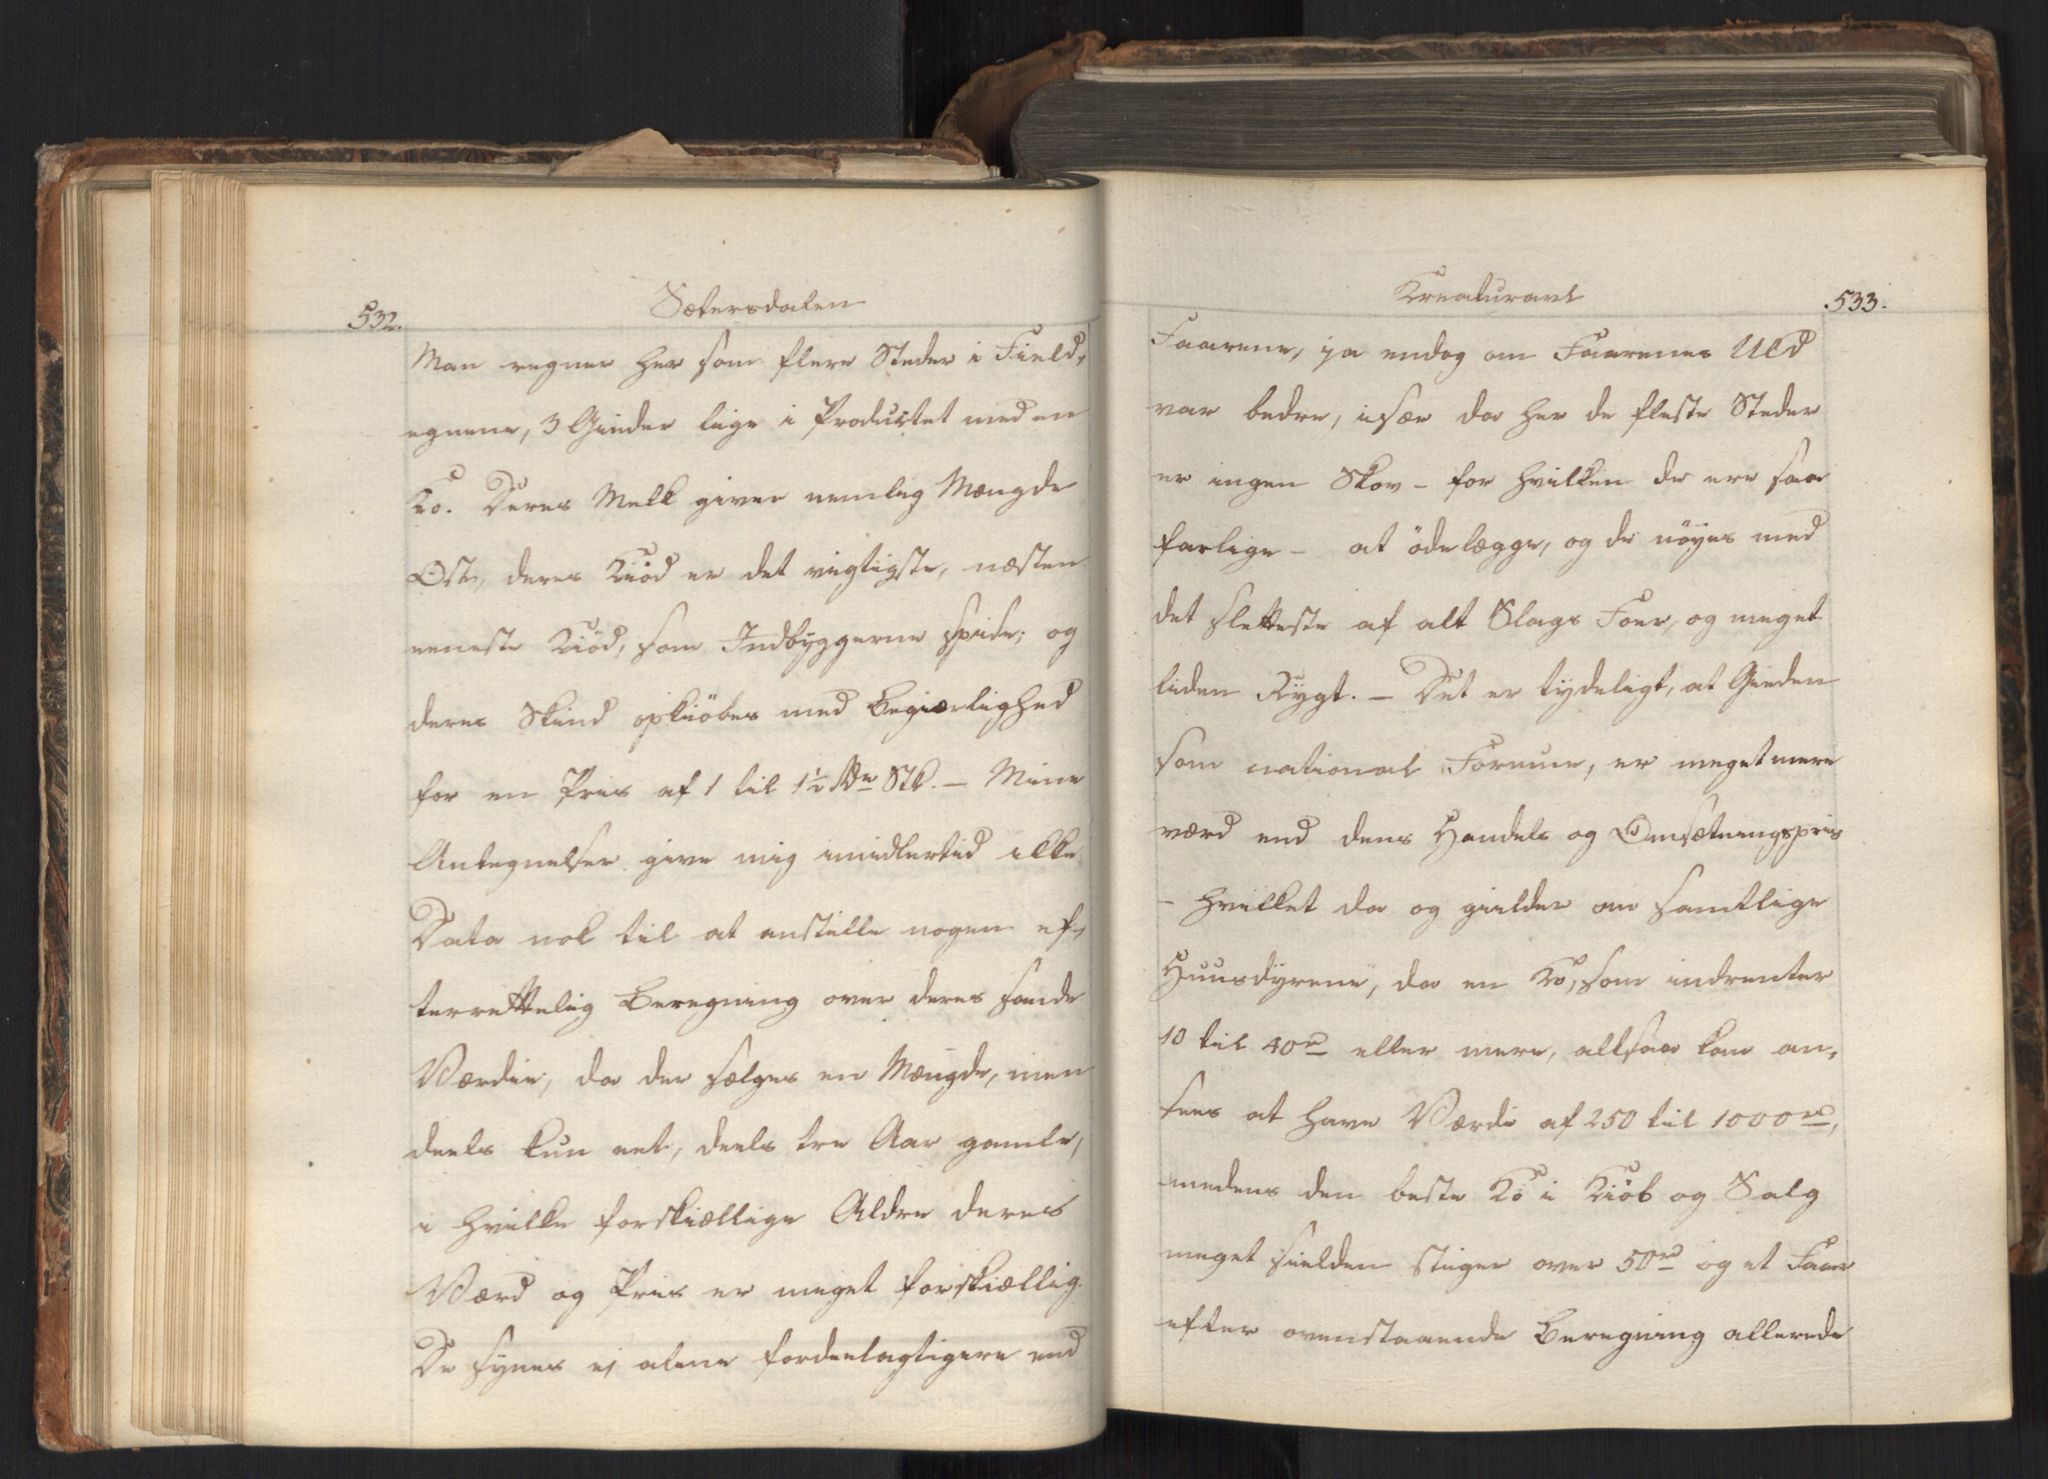 532.
Sætersdalen
Man regner her som flere Steder i Field-
egnene, 3 Gieder lige i Productet med en
Ko. Deres Melk giver nemlig Mængde
Ost, deres Kiöd er det vigtigste, næsten
eeneste Kiöd, som Indbyggerne spise; og
deres Skind opkiöbes med Begiærlighed
for en Pris af 1 til 1½ Stk. – Mine
Antegnelser give mig imidlertid ikke
Data nok til at anstille nogen ef-
terrettelig Beregning over deres sande
Værdie, da der sælges en Mængde, men
deels kun eet, deels tre Aar gamle,
i hvilke forskiællige Aldre deres
Værd og Pris er meget forskiællig.
De synes ej alene fordeelagtigere end
Kreaturavl
533.
Faarene, ja endog om Faarenes Uld
var bedre, især da her de fleste Steder
er ingen Skov – for hvilken de ere saa
farlige – at ödelægge, og de nöyes med
det sletteste af alt Slags Foer, og meget
liden Rygt. – Det er tydeligt, at Gieden
som national Formue, er meget mere
værd end dens Handels og Omsætningspris
– hvilket da og gielder om samtlige
Huusdyrene, da en Ko, som indrenter
10 til 40 rd eller mere, altsaa kan an-
sees at have Værdi af 250 til 1000 rd,
medens den beste Ko i Kiöb og Salg
meget sielden stiger over 50 rd og et Faar
efter ovenstaaende Beregning allerede